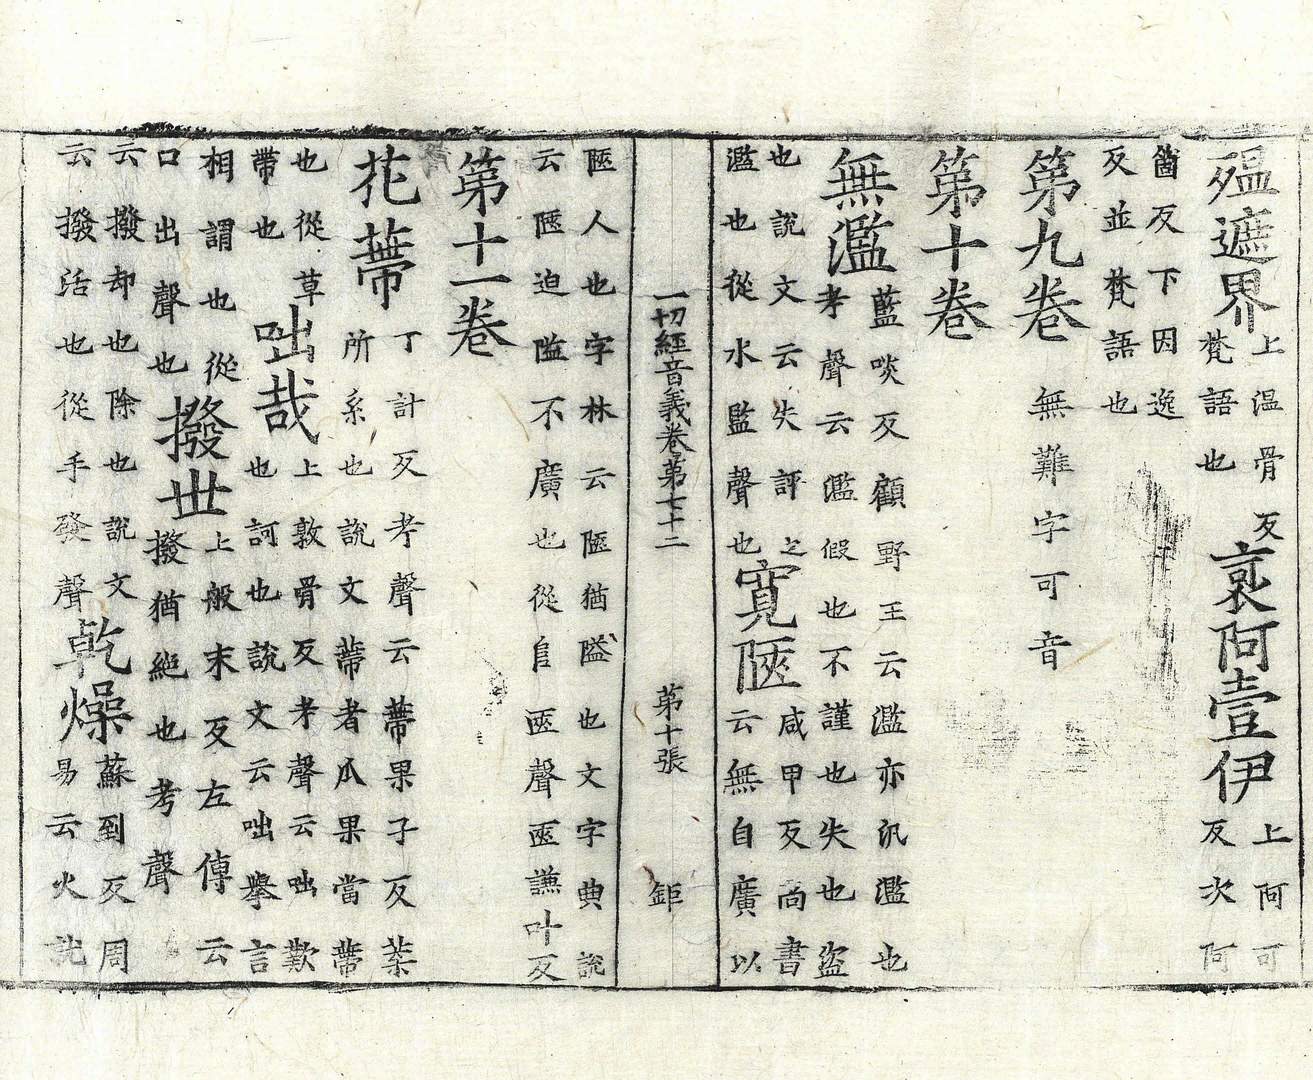 殟遮界上溫骨反梵語也裒阿壹伊上阿可反次阿
箇反下因逸反並梵語也
第九卷無難字可音
第十卷
無濫藍啖反顧野王云濫亦汎濫也考聲云濫假也不謹也失也盜
也說文云失評之濫也從水監聲也寬陿咸甲反尚書云無自廣以
一切經音義卷第七十二 第十張 鉅
陿人也字林云陿猶隘也文字典說云陿迫隘不廣也從𨸏匧聲匧謙叶反
第十一卷
花蔕丁計反考聲云蔕果子反菜所系也說文蔕者瓜果當蔕
也從草帶也咄哉上敦骨反考聲云咄歎也訶也說文云咄舉言
相謂也從口出聲也撥丗上般末反左傳云撥猶絶也考聲
云撥却也除也說文云撥活也從手發聲乾燥蘇到反周易云火就